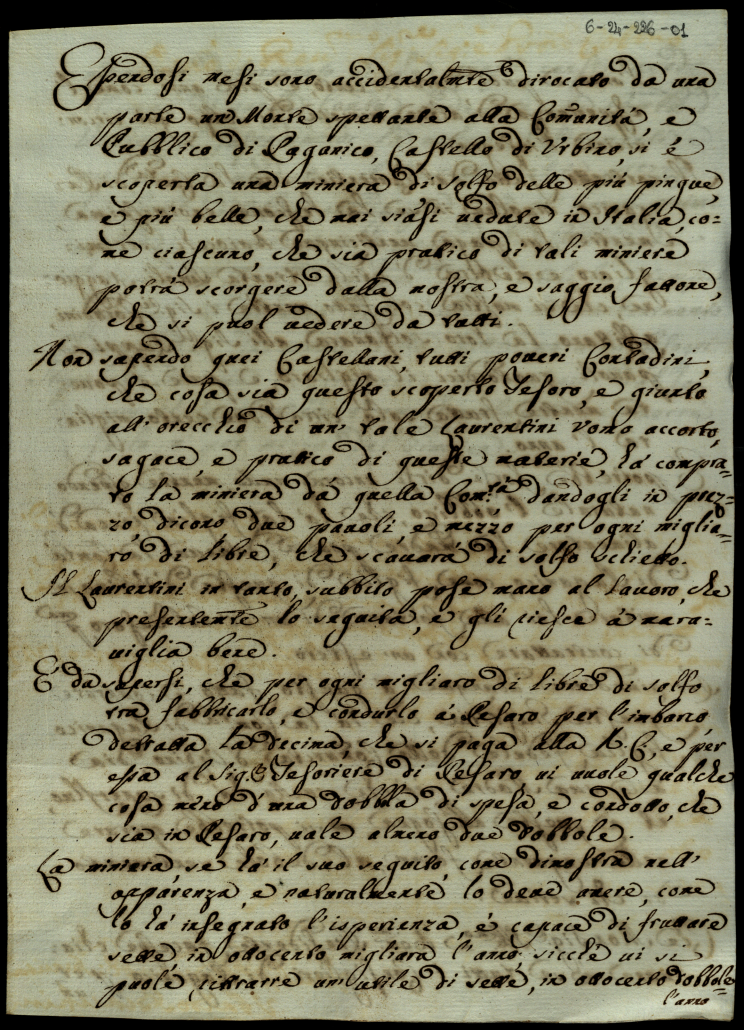 6-24-226-01
Essendosi mesi sono accidentalmte dirocato da una
parte un Monte spettante alla Comunità, e
Pubblico di Paganico, Castello di Urbino, si è
scoperta una miniera di solfo delle più pingue,
e più belle, che mai siasi vedute in Italia, co=
me ciascuno, che sia pratico di tali miniere
potrà scorgere dalla mostra, e saggio fattone,
che si puol vedere da tutti.
Non sapendo quei Castellani, tutti poveri Contadini,
che cosa sia questo scoperto Tesoro, e giunto
all'orecchio di un tale Laurentini Vomo accorto,
sagace, e pratico di queste materie, hà compra=
to la miniera dà quella Com.tà dandogli in prez=
zo dicono due pavoli, e mezzo per ogni miglia=
ro di libre, che scavarà di solfo schietto.
Il Laurentini in tanto, subbito pose mano al lavoro, che
presentemte lo seguita, e gli riesce à mara=
viglia bene.
E da sapersi, che per ogni migliaro di libre di solfo
trà fabbricarlo, e condurlo à Pesaro per l'imbarco,
detratta la decima, che si paga alla R. C., e per
essa al Sig.e Tesoriere di Pesaro vi vuole qualche
cosa meno d'una dobbla di spesa, e condotto, che
sia in Pesaro, vale almeno due dobbole.
La miniera, se hà il suo seguito, come dimostra nell'
apparenza, e naturalmente lo deve avere, come
lo hà insegnato l'isperienza, è capace di fruttare
sette, in ottocento migliara l'anno, sicchè vi si
puole ritrarre un utile di sette, in ottocento dobbole
l'anno